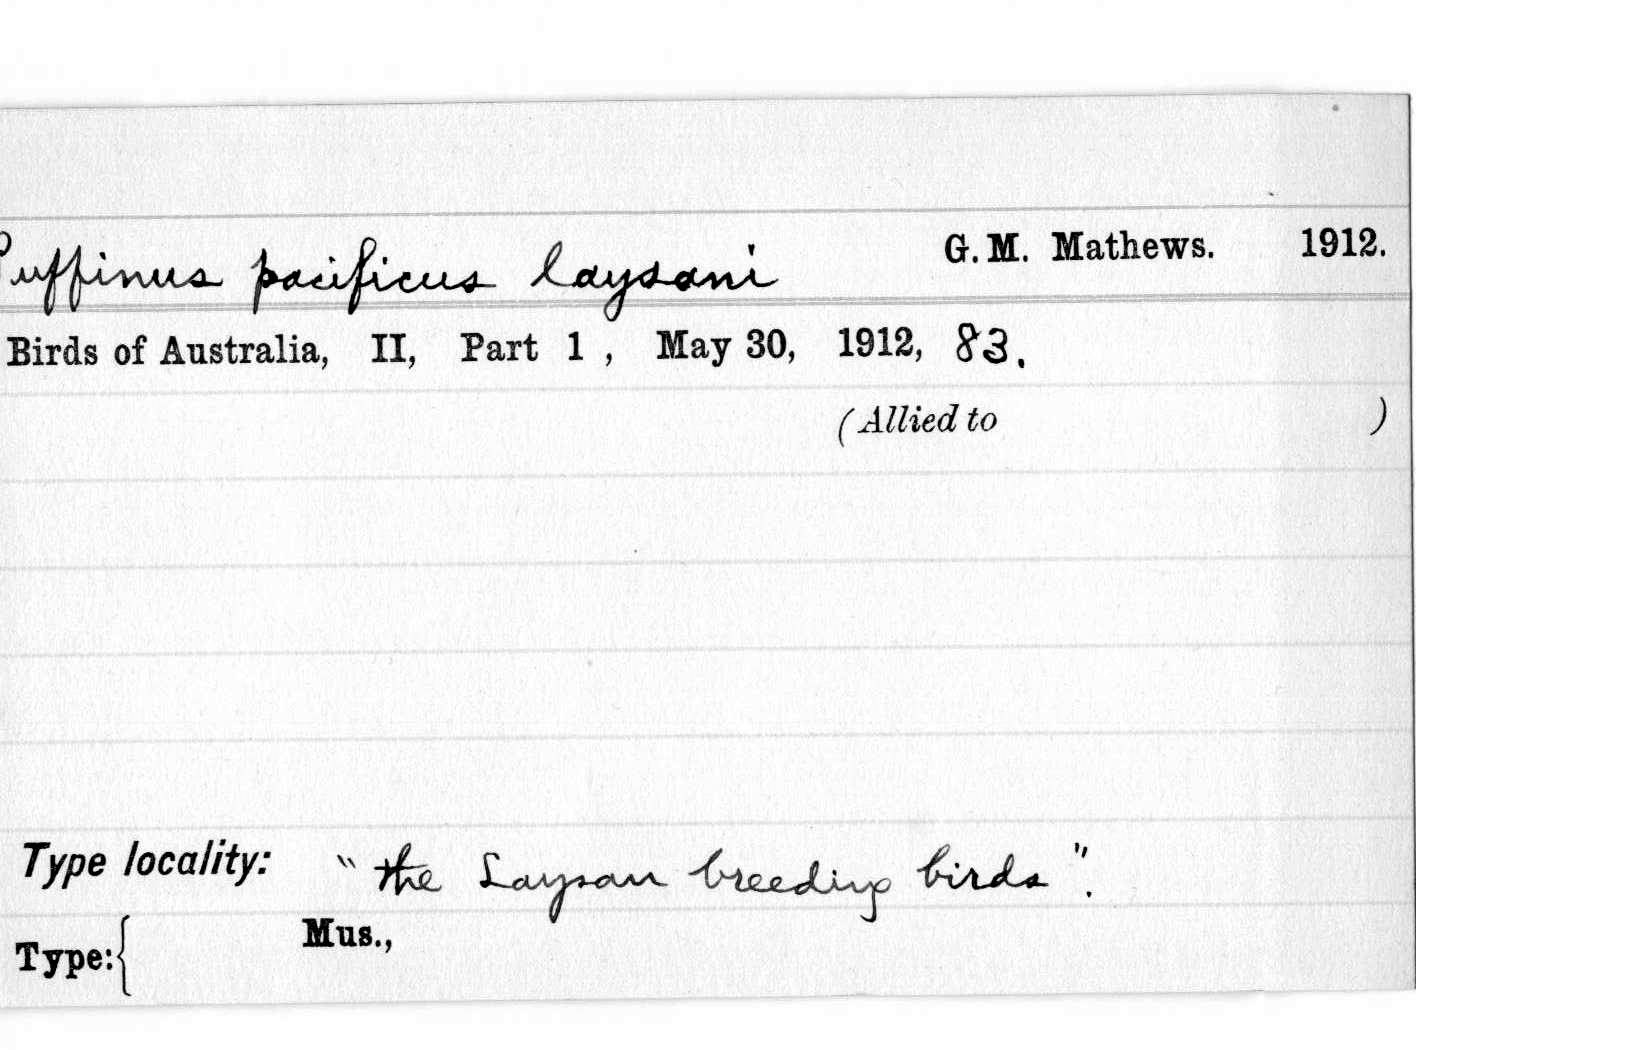 Puffinus pacificus laysani G. M. Mathews. 1912.
Birds of Australia, II, Part 1 , May 30, 1912, 83.
(Allied to )
Type locality: "the Laysan breeding birds".
Mus.,
Type:{